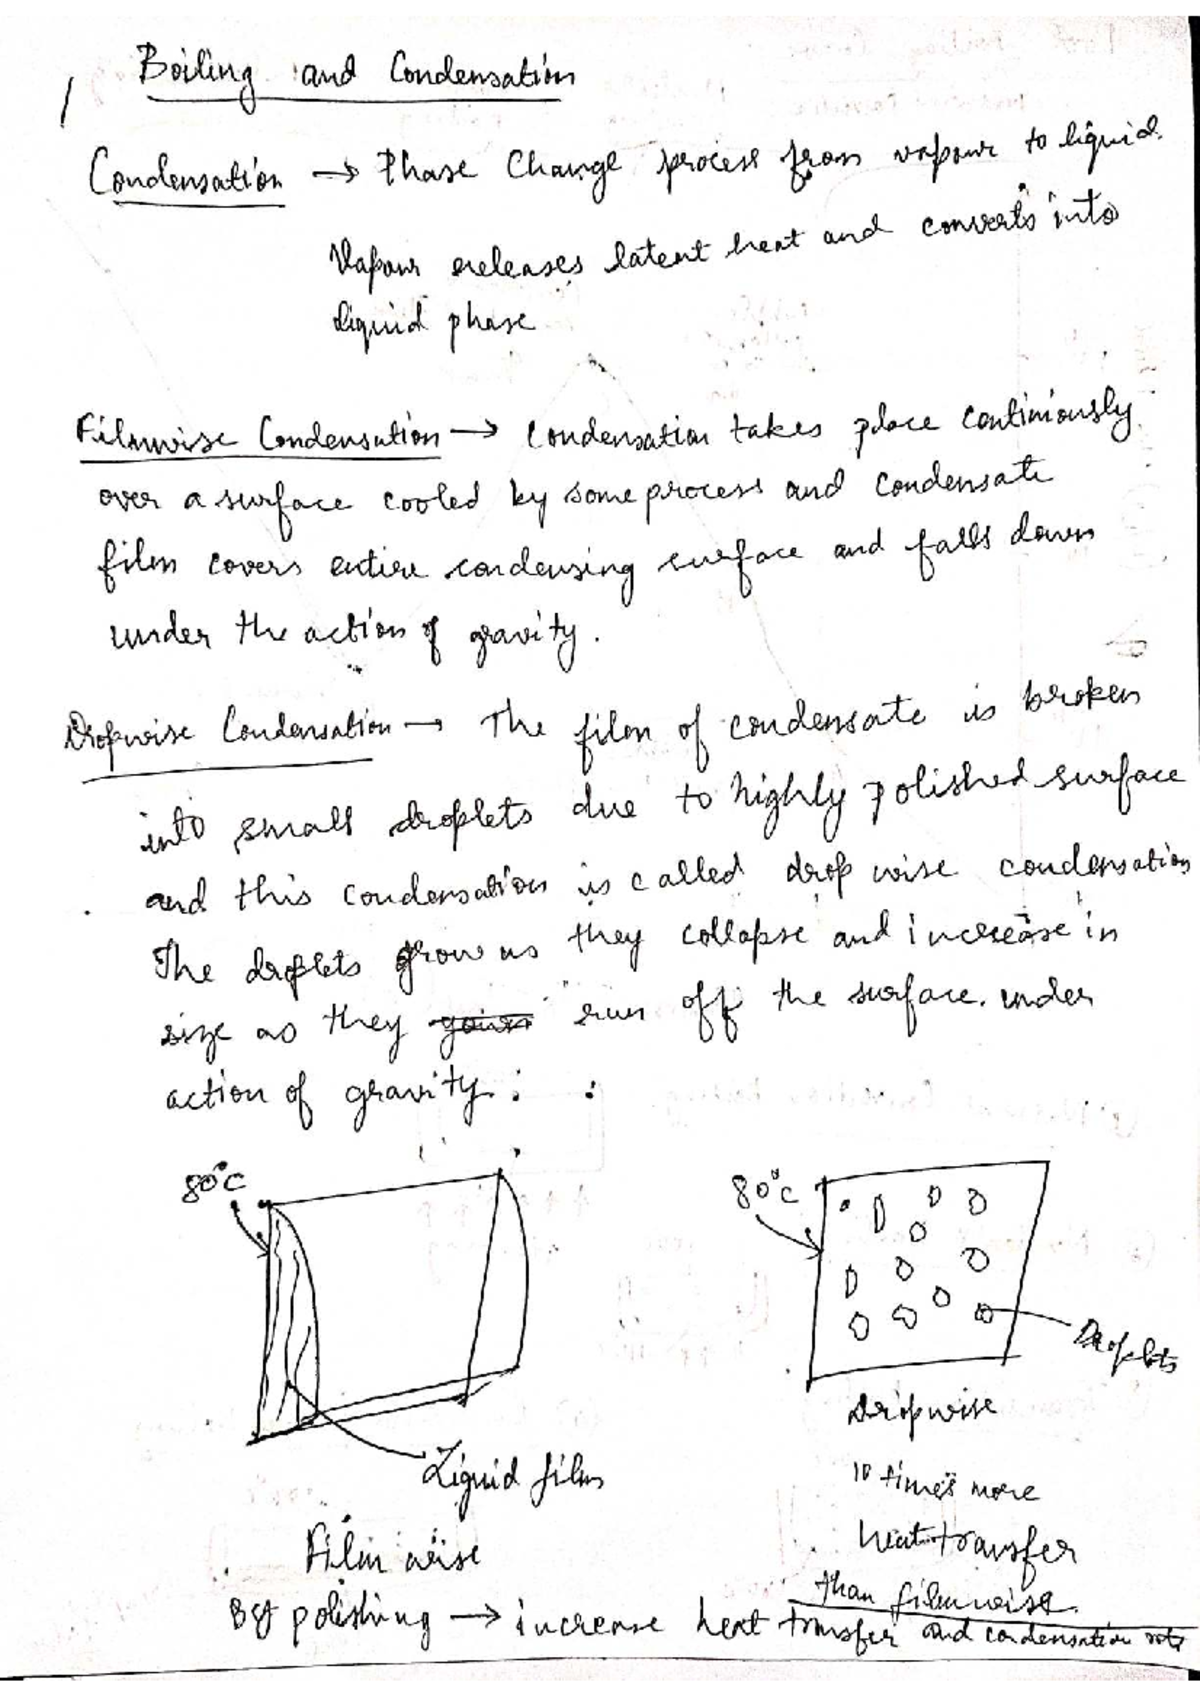 Boiling and Condensation
1
Condensation → Phase Change process from vapour to liquid.
Vapour releases latent heat and converts into
liquid phase
Filmwise Condensation → Condensation takes place continiously
over a surface cooled by some process and condensate
film covers entire condensing surface and falls down
under the action of gravity.
Dropwise Condensation → The film of condensate is broken
into small droplets due to highly polished surface
and this condensation is called drop wise condensation
The droplets grow as they collapse and increase in
size as they run off the surface. under
action of gravity.
80°C
80°C
Droplets
Dropwise
Liquid film
10 times more
heat transfer
Film wise
than filmwise.
By polishing → increase heat transfer and condensation rate